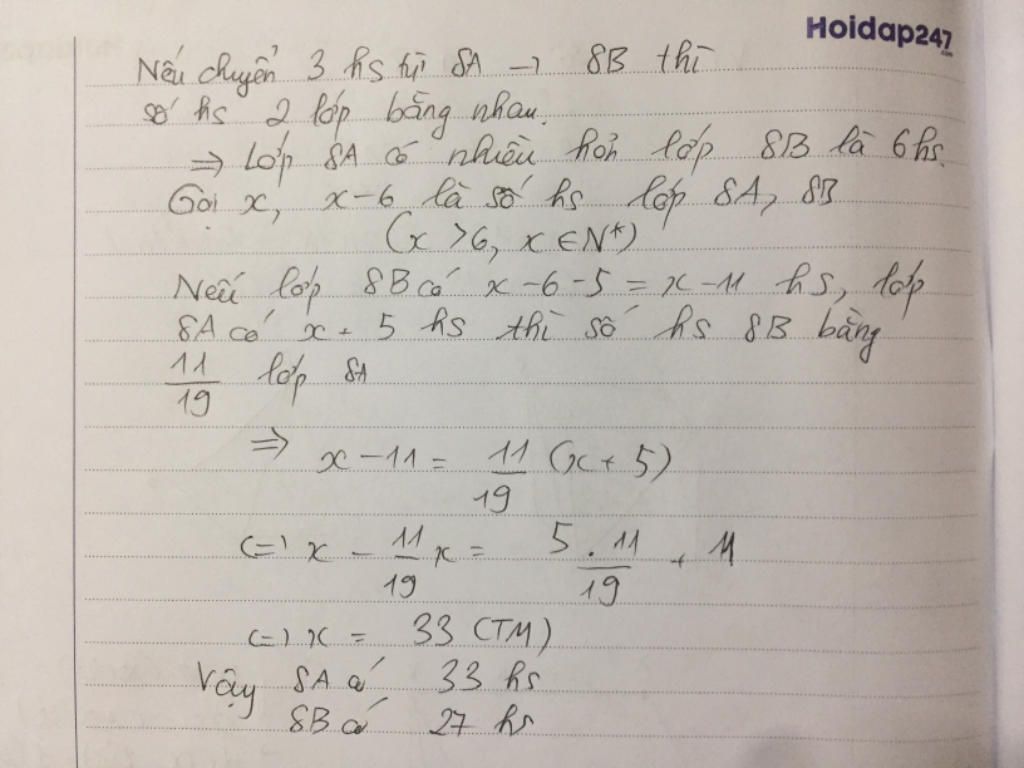 Hoidap247
.com
Nếu chuyển 3 hs từ 8A → 8B thì
số hs 2 lớp bằng nhau.
⇒ Lớp 8A có nhiều hơn lớp 8B là 6 hs.
Gọi x, x-6 là số hs lớp 8A, 8B
(x >6, x ∈ N*)
Nếu lớp 8B có x-6-5 = x-11 hs, lớp
8A có x + 5 hs thì số hs 8B bằng
11/19 lớp 8A
⇒ x-11 = 11/19 (x+5)
(=) x - 11/19 x = 5.11/19 + 11
(=) x = 33 (TM)
Vậy 8A có 33 hs
8B có 27 hs